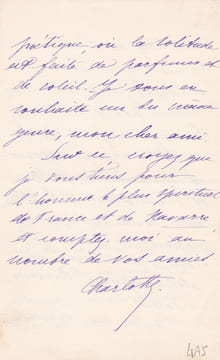 poétique où la solitude
est faite de parfums et
de soleil. Je vous en
souhaite un du même
genre, mon cher ami.
Sur ce, croyez que
je vous tiens pour
l'homme le plus spirituel
de France et de Navarre
et comptez moi au
nombre de vos amies
Charlotte